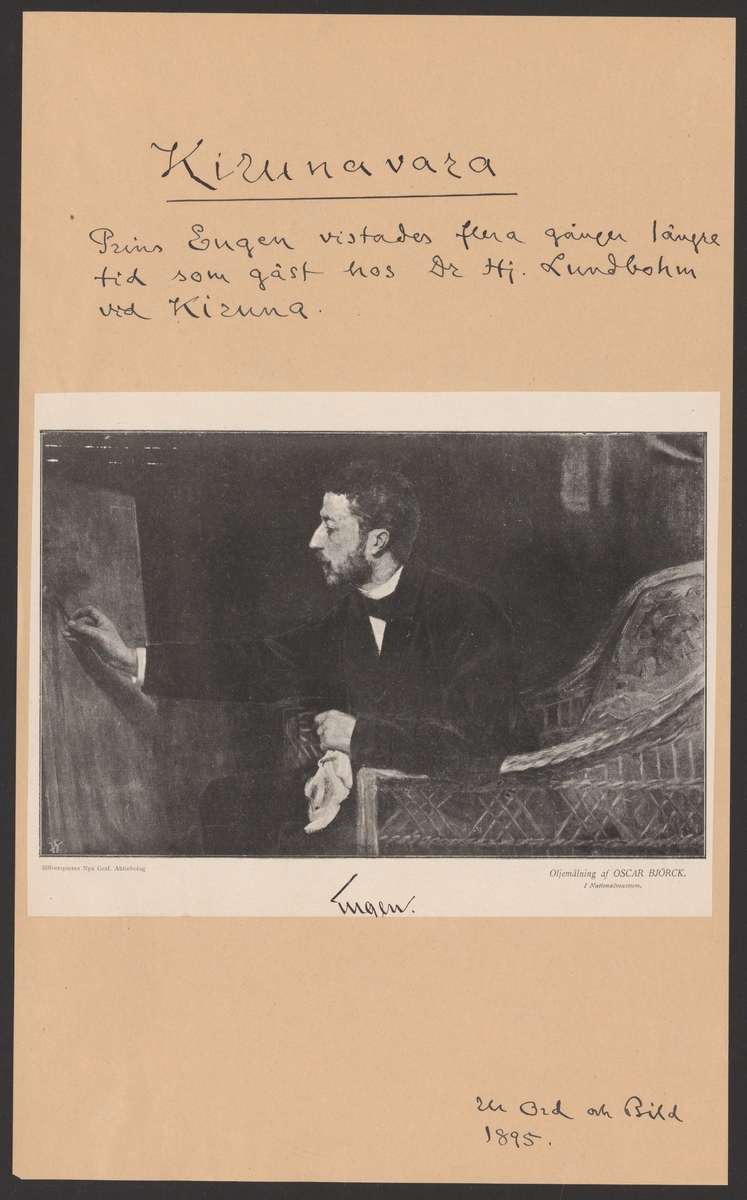 Kirunavara
Prins Eugen vistades flera gånger längre
tid som gäst hos Dr Hj. Lundbohm
vid Kiruna.
Silfversparres Nya Graf. Aktiebolag
Oljemålning af OSCAR BJÖRCK.
I Nationalmuseum.
Eugen.
Ur Ord och Bild
1895.